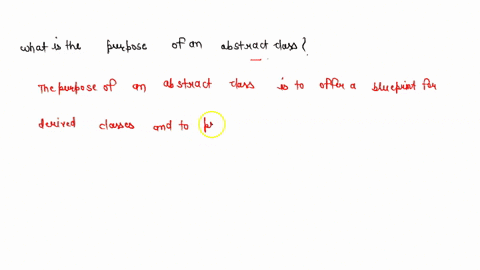 what is the purpose of an abstract class?
The purpose of an abstract class is to offer a blueprint for
derived classes and to pr